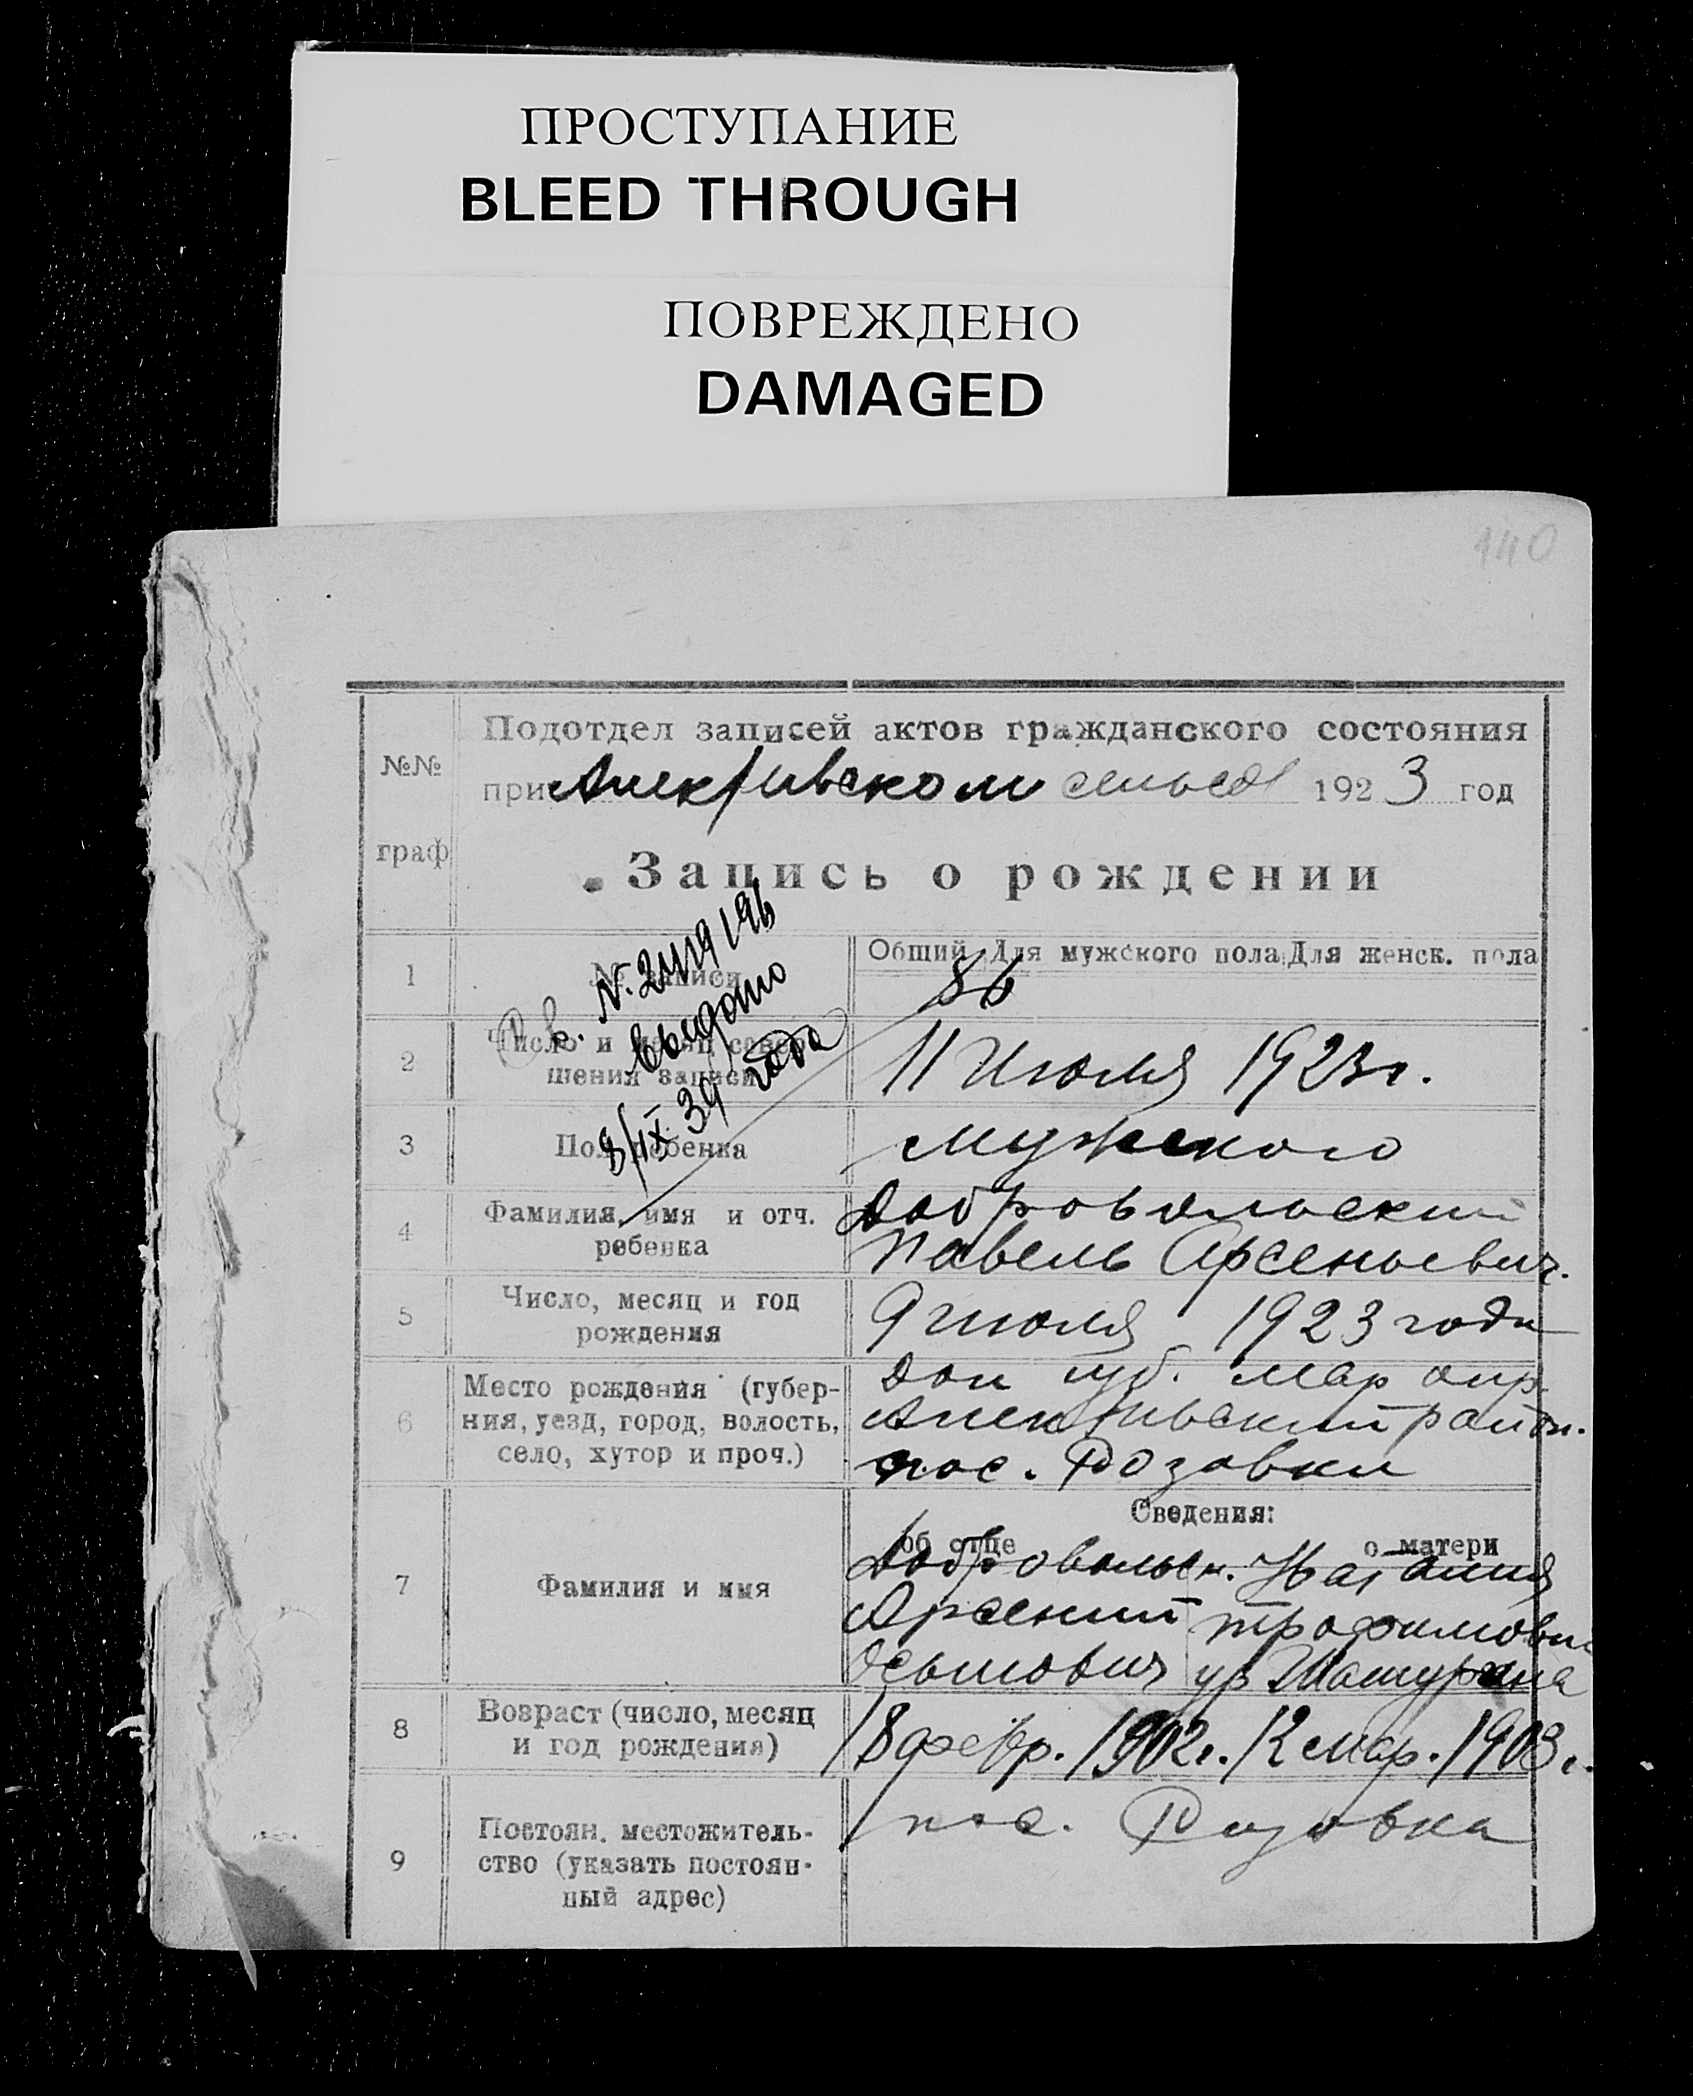 ПРОСТУПАНИЕ
BLEED THROUGH
ПОВРЕЖДЕНО
DAMAGED
140
№№
граф
Подотдел записей актов гражданского состояния
при 1923 год
Запись о рождении
1
№ записи
Общий Для мужского пола Для женск. пола
86
2
Число и месяц совер-
шения записи
11 Июля 1923 г.
выдано
8/IX 39 года
3
Пол ребенка
Мужского
4
Фамилия, имя и отч.
ребенка
Добровольский
Павель Арсеньевич.
5
Число, месяц и год
рождения
9 июля 1923 года
6
Место рождения (губер-
ния, уезд, город, волость,
село, хутор и проч.)
Дон губ. Мар окр.
район.
пос. Розовки
Сведения:
об отце о матери
7
Фамилия и имя
Добровольск. Наталия
Арсений Трофимовна
ур
8
Возраст (число, месяц
и год рождения)
18 февр. 1902 г. 12 мар. 1903 г.
9
Постоян. местожитель-
ство (указать постоян-
ный адрес)
пос. Розовка